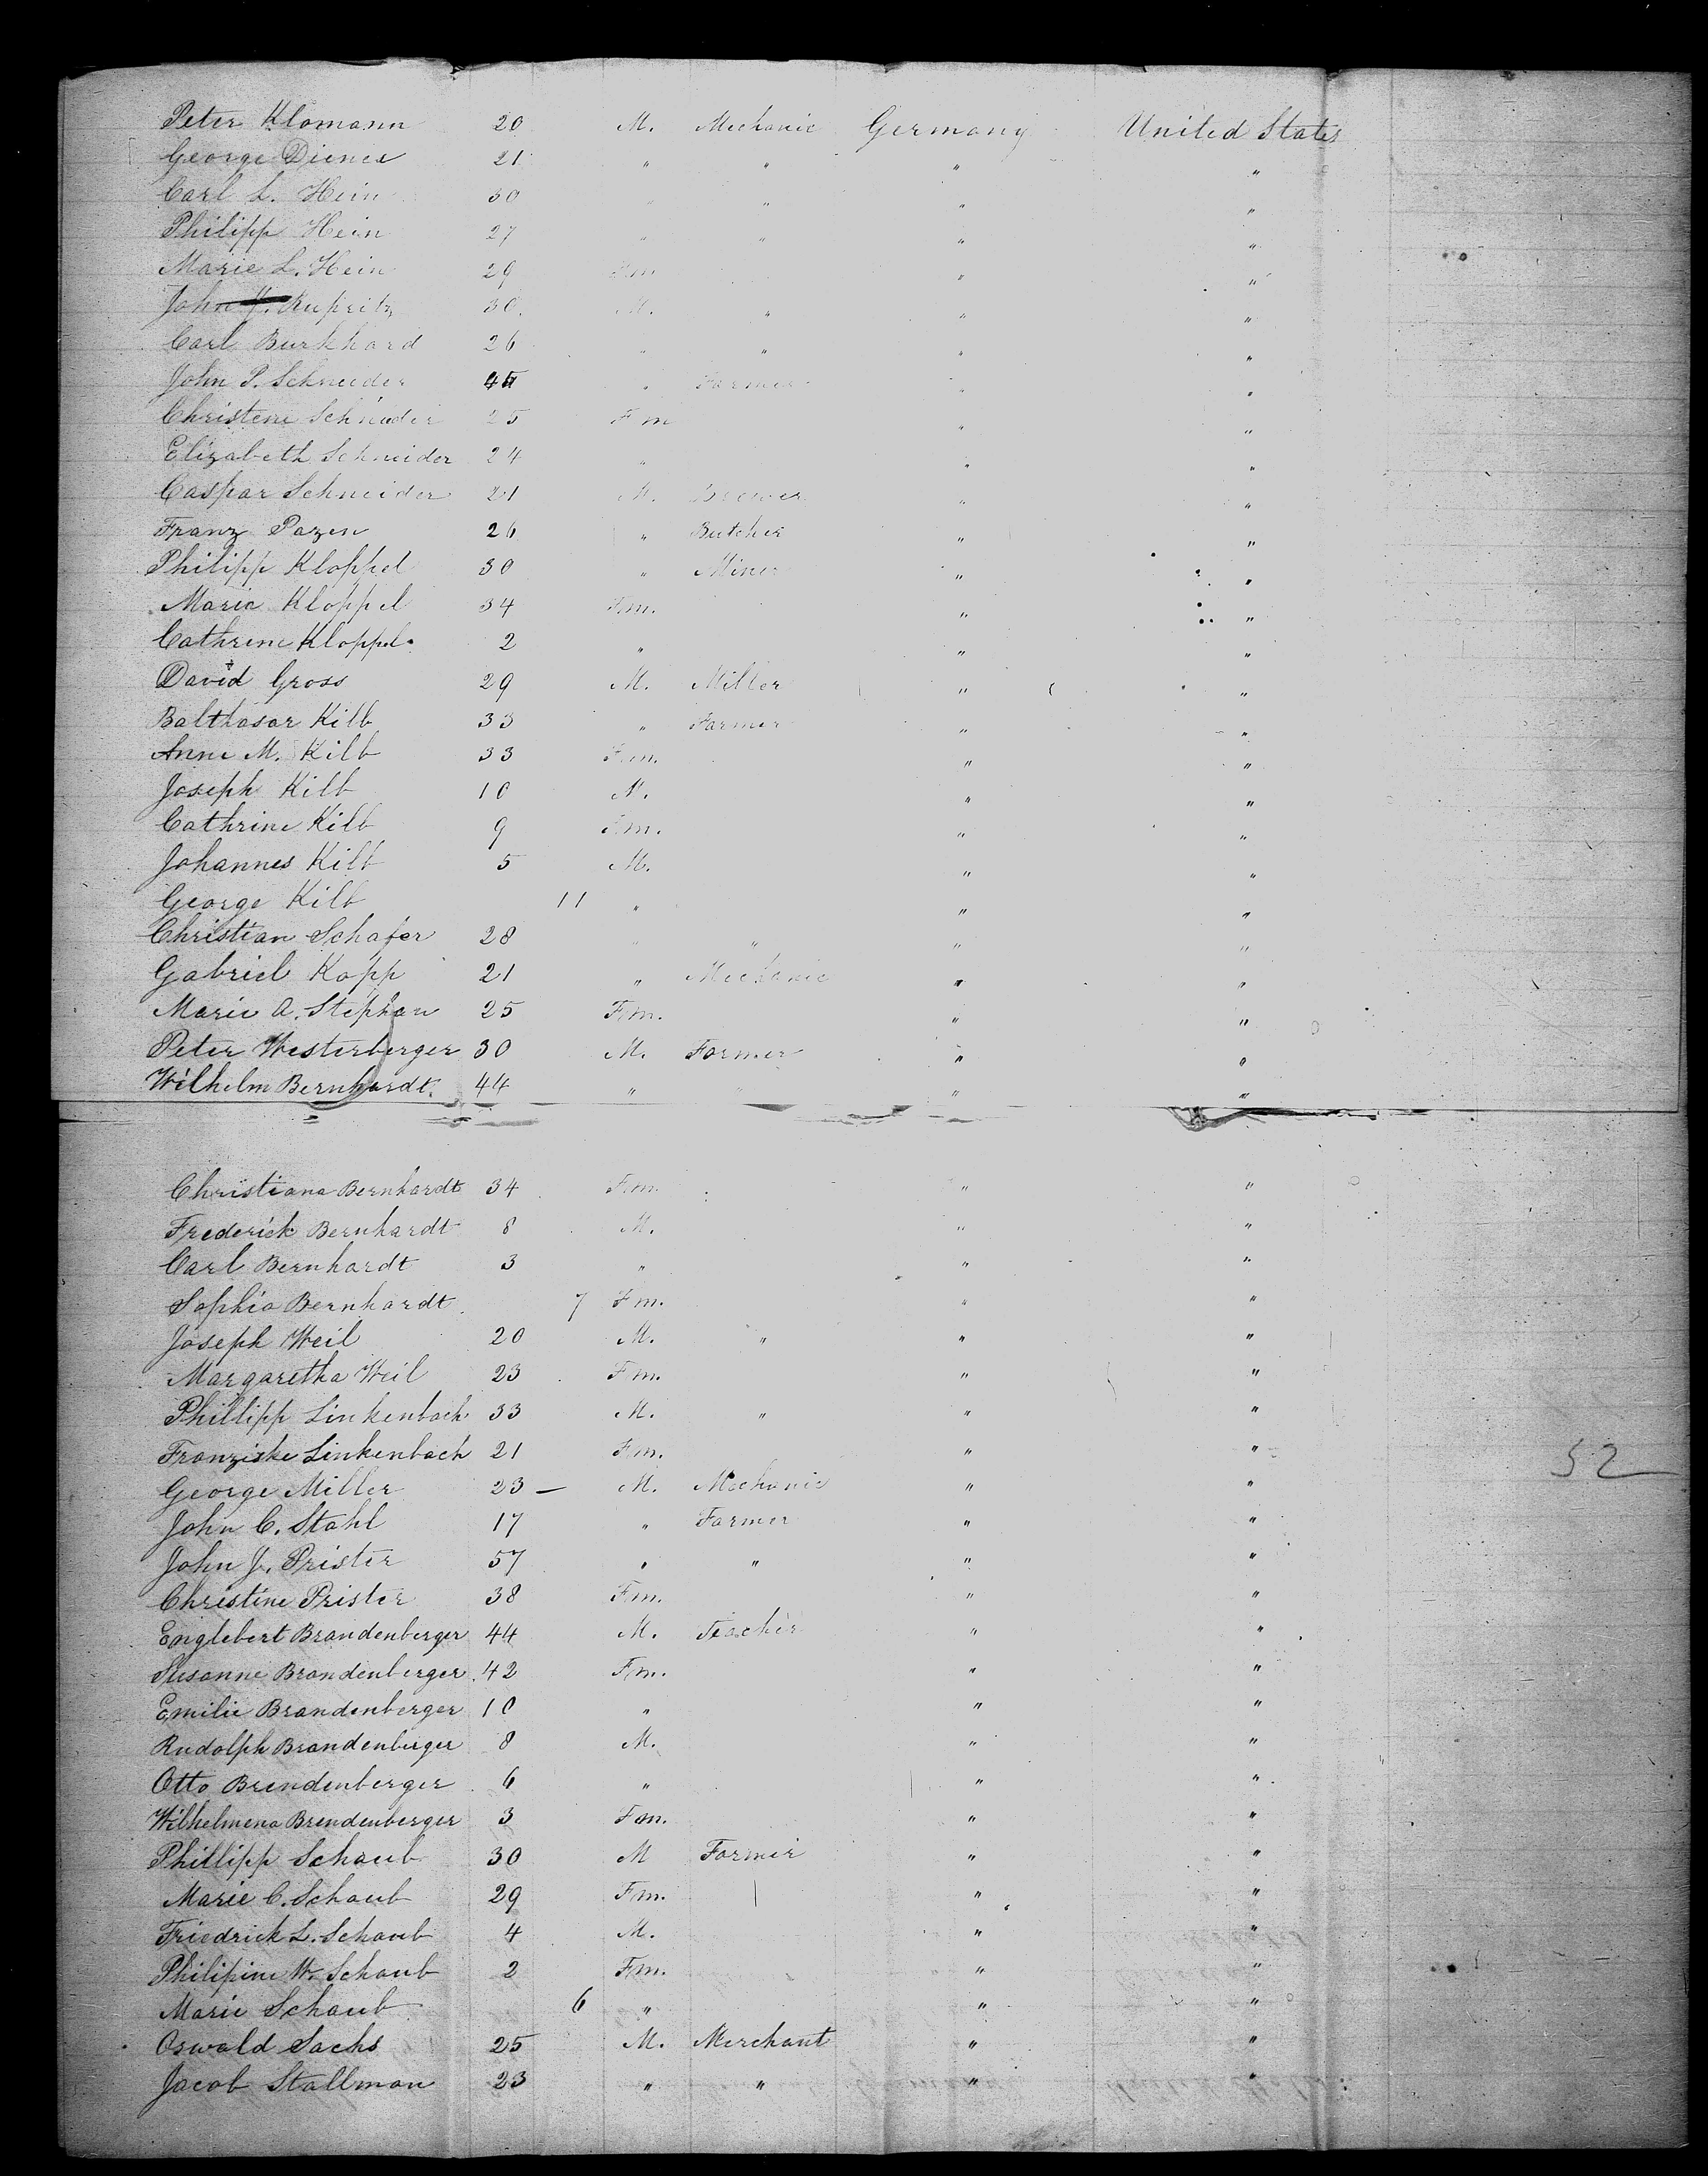 Peter Klomann 20 M. Mechanic Germany United States
George Diener 21 " " " "
Carl L. Hein 30 " " " "
Philipp Hein 27 " " " "
Marie L. Hein 29 Fm " "
John Rupritz 30. M. " " "
Carl Burkhard 26 " " " "
John P. Schneider " Farmer " "
Christene Schneider 25 Fm " "
Elizabeth Schneider 24 " " "
Caspar Schneider 21 M. Brewer " "
Franz Pazen 26 " Butcher " "
Philipp Kloppel 30 " Miner " "
Maria Kloppel 34 Fm. " "
Cathrene Kloppel 2 " " "
David Gross 29 M. Miller " "
Balthasar Kilb 33 " Farmer " "
Anne M. Kilb 33 Fm. " "
Joseph Kilb 10 M. " "
Cathrine Kilb 9 Fm. " "
Johannes Kilb 5 M. " "
George Kilb 11 " " "
Christian Schafer 28 " " " "
Gabriel Kopp 21 " Mechanic " "
Marie A. Stephan 25 Fm. " "
Peter Westerberger 30 M. Farmer " "
Wilhelm Bernhardt. 44 " " " "
Christiana Bernhardt 34 Fm. " "
Frederick Bernhardt 8 M. " "
Carl Bernhardt 3 " " "
Sophia Bernhardt 7 Fm. " "
Joseph Weil 20 M. " " "
Margaretha Weil 23 Fm. " "
Phillipp Linkenbach 33 M. " " "
Franziske Linkenbach 21 Fm. " "
52
George Miller 23 — M. Mechanic " "
John C. Stahl 17 " Farmer " "
John J. Prister 57 " " " "
Christine Prister 38 Fm. " "
Englebert Brandenberger 44 M. Teacher " "
Susanne Brandenberger 42 Fm. " "
Emilie Brandenberger 10 " " "
Rudolph Brandenberger 8 M. " "
Otto Brendenberger 6 " " "
Wilhelmena Brendenberger 3 Fm. " "
Phillipp Schaub 30 M Farmer " "
Marie C. Schaub 29 Fm. " "
Friedrick L. Schaub 4 M. " "
Philipine W. Schaub 2 Fm. " "
Marie Schaub 6 " " "
Oswald Sachs 25 M. Merchant " "
Jacob Stallman 23 " " " "